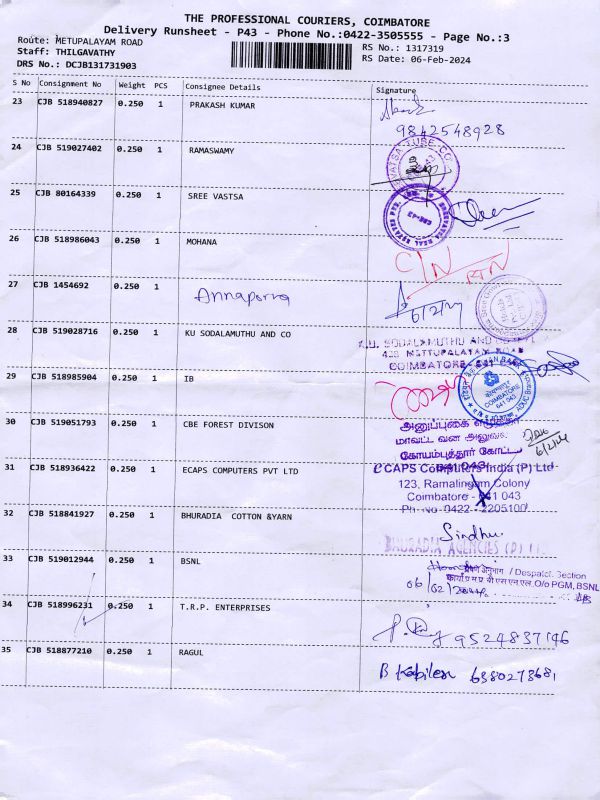 THE PROFESSIONAL COURIERS, COIMBATORE
Delivery Runsheet - P43 - Phone No.:0422-3505555 - Page No.:3
Route: METUPALAYAM ROAD
Staff: THILGAVATHY
DRS No.: DCJB131731903
RS No.: 1317319
RS Date: 06-Feb-2024
S No Consignment No Weight PCS Consignee Details Signature
23 CJB 518940827 0.250 1 PRAKASH KUMAR
9842548928
24 CJB 519027402 0.250 1 RAMASWAMY
25 CJB 80164339 0.250 1 SREE VASTSA
26 CJB 518986043 0.250 1 MOHANA
27 CJB 1454692 0.250 1 Annapurna
6/2/24
28 CJB 519028716 0.250 1 KU SODALAMUTHU AND CO
K.U. SODALAMUTHU AND
METTUPALAYAM ROAD
COIMBATORE
29 CJB 518985904 0.250 1 IB
INDIAN BANK
COIMBATORE
641 043
30 CJB 519051793 0.250 1 CBE FOREST DIVISON
மாவட்ட வன அலுவலகம்
கோயம்புத்தூர் கோட்டம்
641 043
6/2/24
31 CJB 518936422 0.250 1 ECAPS COMPUTERS PVT LTD
eCAPS Computers India (P) Ltd
123, Ramalingam Colony
Coimbatore - 641 043
Ph-No-0422-2205100
32 CJB 518841927 0.250 1 BHURADIA COTTON &YARN
Sindhu
BHURADIA AGENCIES (P)
33 CJB 519012944 0.250 1 BSNL
/ Despatch Section
O/o PGM, BSNL
06/02/2024
34 CJB 518996231 0.250 1 T.R.P. ENTERPRISES
9524837146
35 CJB 518877210 0.250 1 RAGUL
B Kapilesn 6380273681